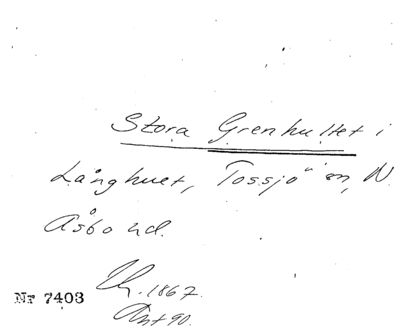 Stora Grenhultet i
Långhult, Tossjö sn, N.
Åsbo hd.
Th. 1867.
Nr 7403
Ant 90.